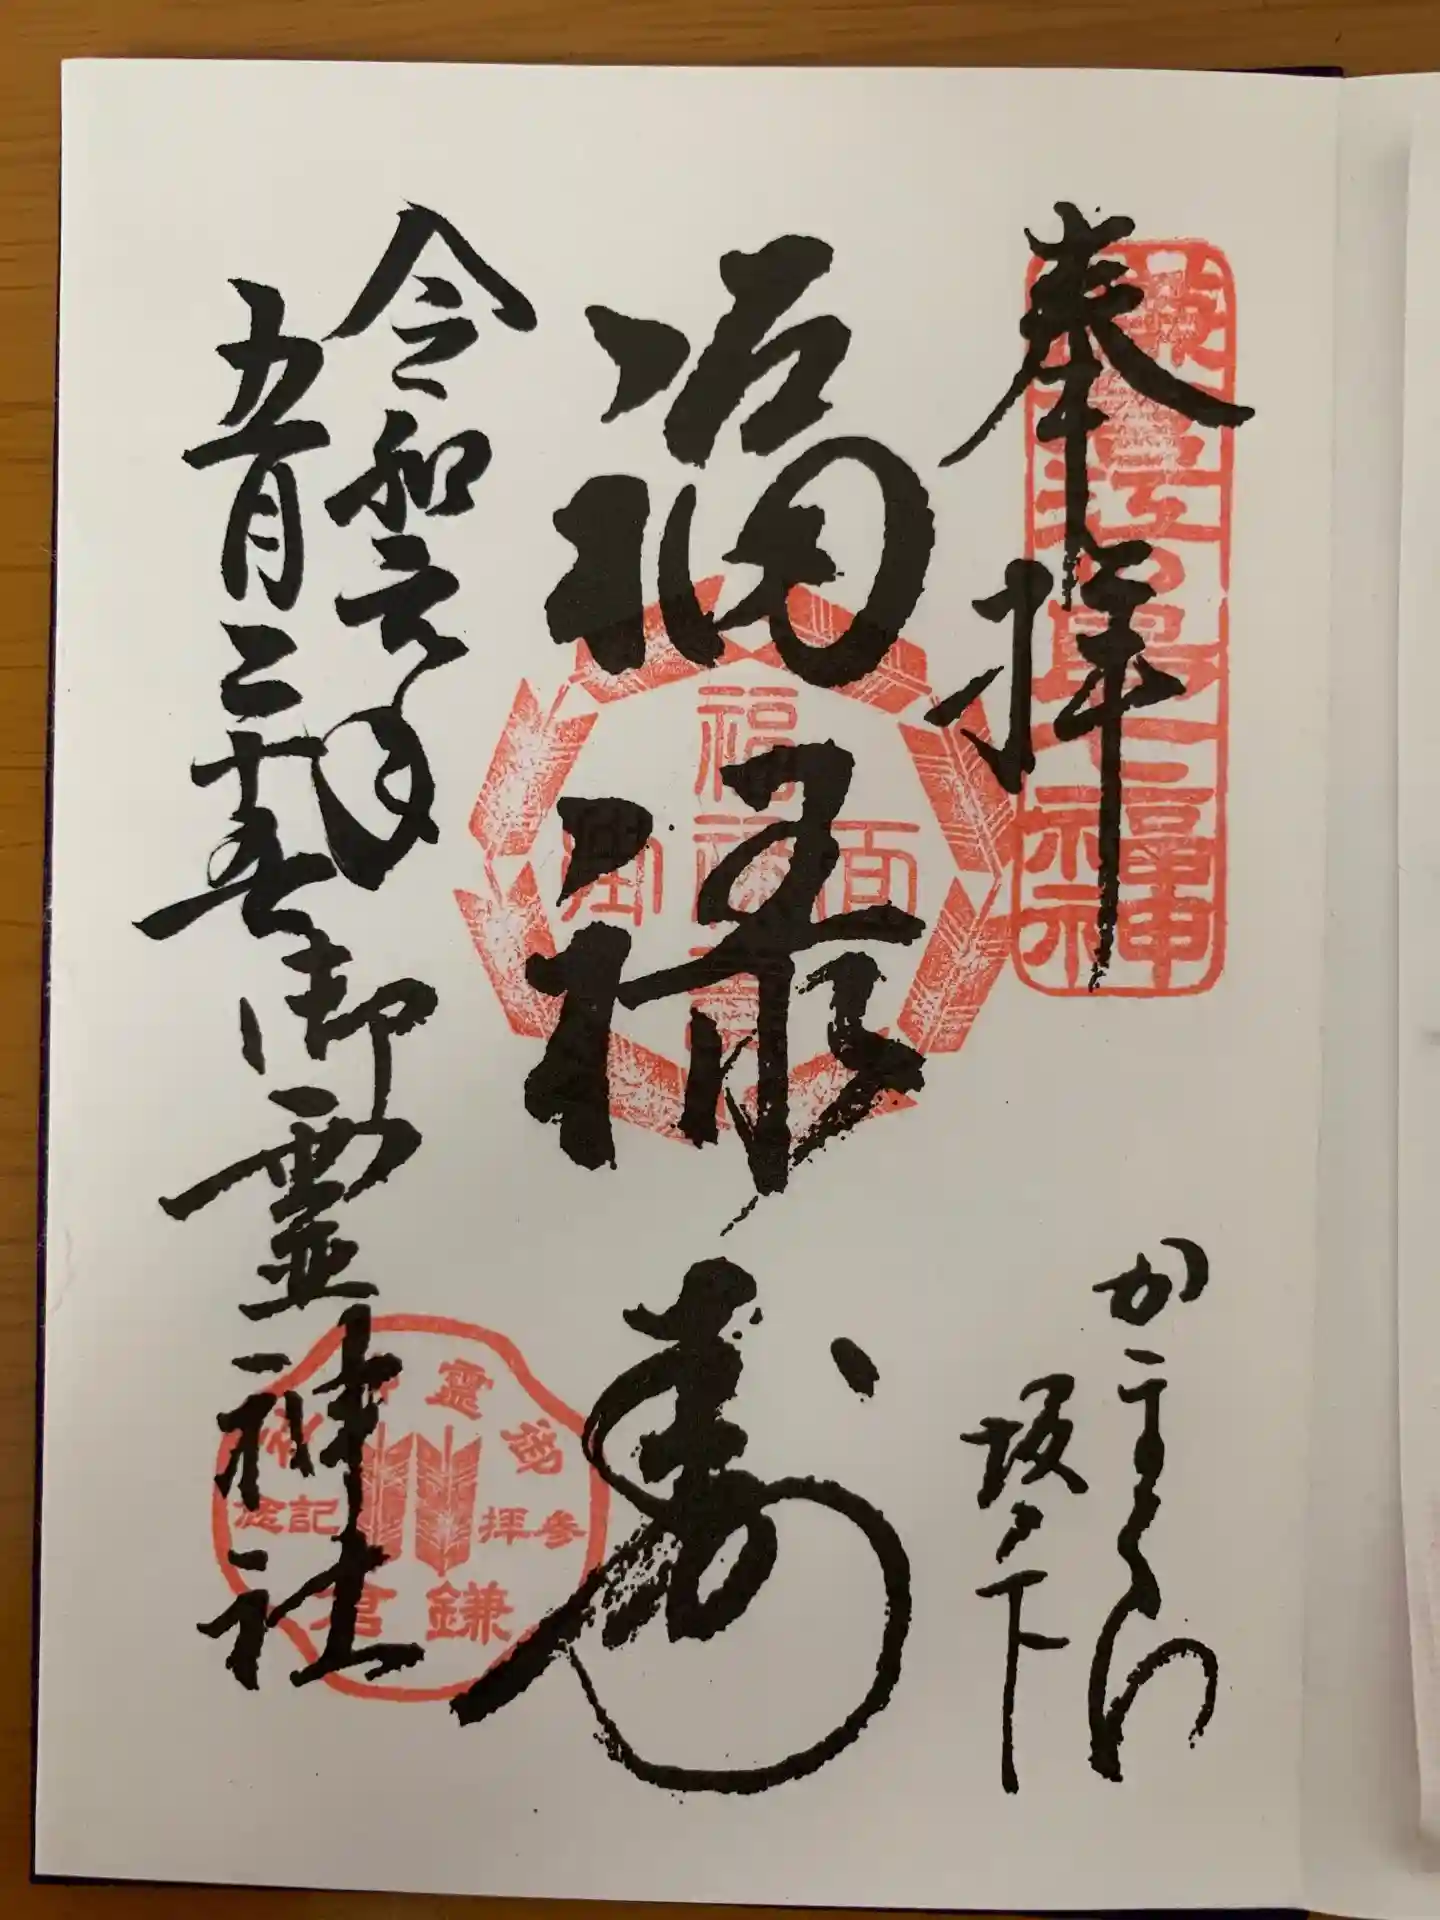 奉拝
かまくら
坂ノ下
福禄寿
令和元年
九月二十五
御霊神社
鎌倉江ノ島七福神
福禄寿
面掛
御霊神社
参拝記念
鎌倉